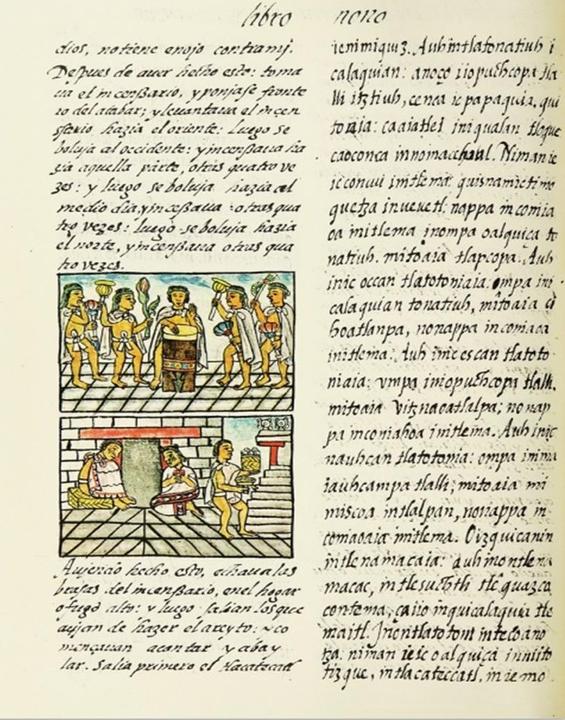 libro nono
dios, no tiene enojo contra mj.
Despues de auer hecho esto: toma
ua el incensario, y ponjase fronte
ro del atabar; y leuantaua el incen
sario hazia el oriente: luego se
boluja al occidente: yncensaua ha
zia aquella parte, otras quatro ve
zes: y luego se boluja hazia el
medio dia, yincensaua otras qua
tro vezes: luego se boluja hazia
el norte, yincensaua otras qua
tro vezes.
Aujendo hecho esto, echaua las
brasas del incensario, en el hogar
o fugõ alto: y luego salian los que
aujan de hazer el areyto: y co
mençauan acantar y abay
lar. Salia primero el tlacateccatl
calaquian: anoço iiopuchcopa tla
lli itztiuh, cenca ic papaquia, qui
toaia: ca aiatlei
caoconca innomaceoal. Niman ic
ic conuvi imtlema:
quetza inueuetl: nappa in comia
oa mitlema inompa oalquiça to
natiuh. mitoaia tlapcopa. Auh
inic occan tlatotoniaia. ompa ini
calaquian tonatiuh, mitoaia çi
hoatlanpa, nonappa in comiaoa
initlema: Auh inic escan tlatoto
niaia: vmpa iniopuchcopa tlalli.
mitoaia vitznaoatlalpa; no nap
pa inconiahoa initlema. Auh inic
nauhcan tlatotonia: ompa inima
iauhcampa tlalli; mitoaia mi
miscoa intlalpan, nonappa in
comaoaia mitlema. Oizquicanin
intlenamacaia: auh montlena
macac,
contema, caiio inquicalaquia tle
maitl. Inontlatotoni
tza: niman ieic oalquiça inniito
tizque, intlacateccatl, in iemo